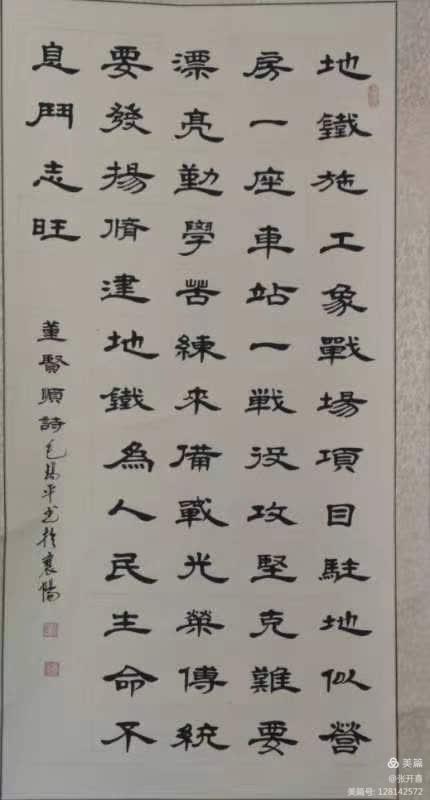 地鐵施工象戰場項目駐地似營
房一座車站一戦役攻堅克難要
漂亮勤學苦練来備戰光榮傳統
要發揚脩建地鐵為人民生命不
息鬥志旺
董賢順詩 平书於襄陽
美篇
@张开喜
美篇号: 128142572